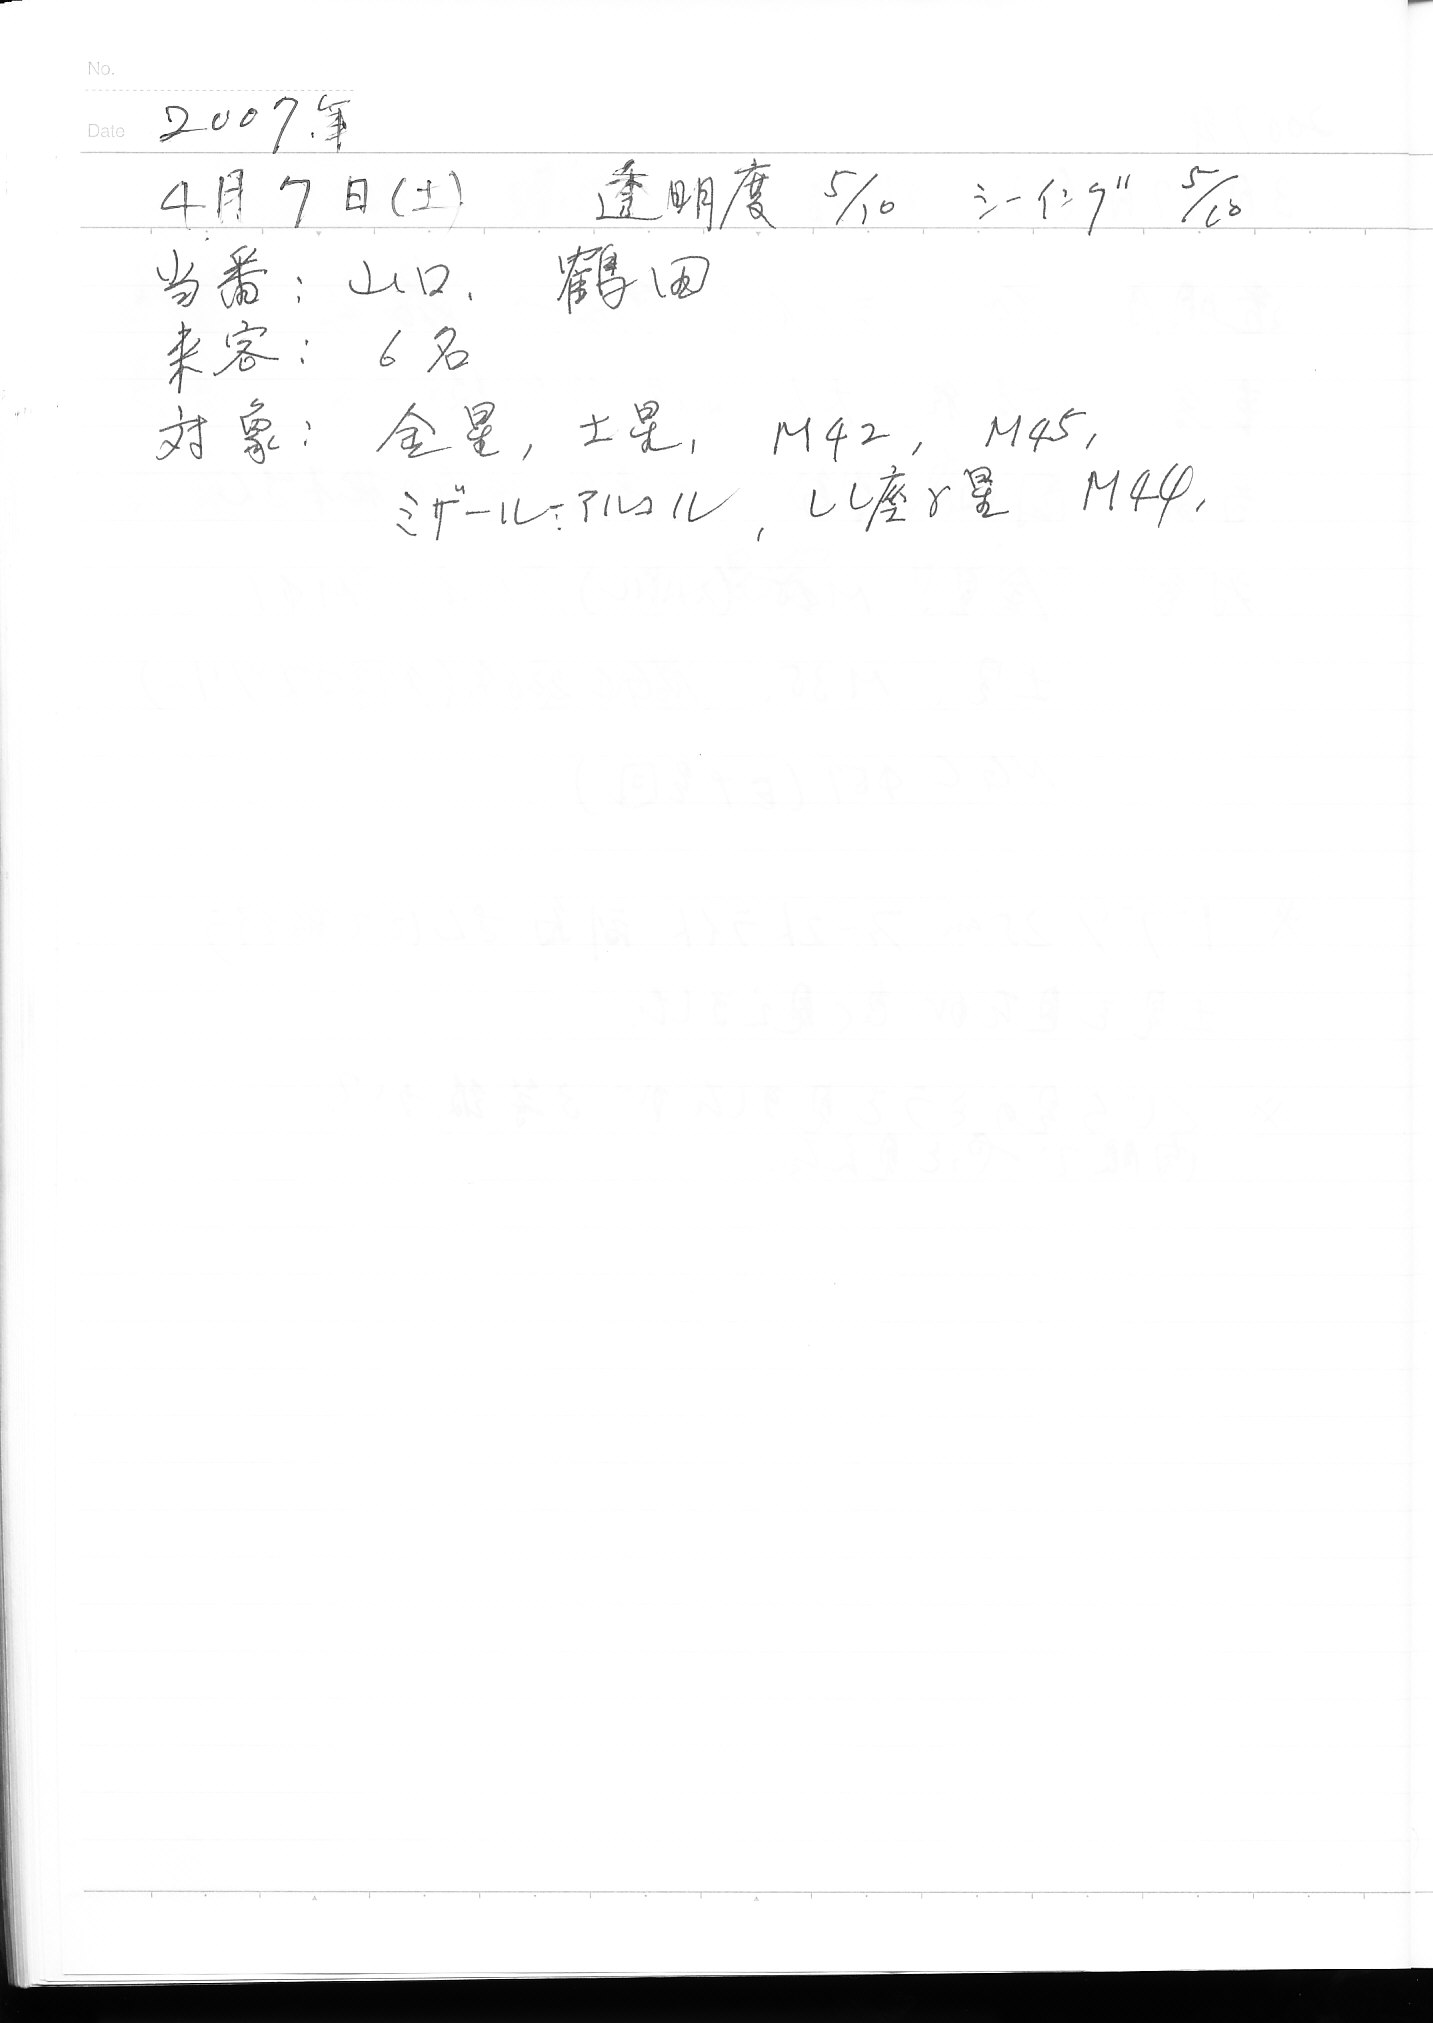 No.
Date 2007年
4月7日(土) 透明度 5/10 シーイング 5/10
当番: 山口、 鶴田
来客: 6名
対象: 金星, 土星, M42, M45,
ミザール=アルコル, しし座γ星 M44,